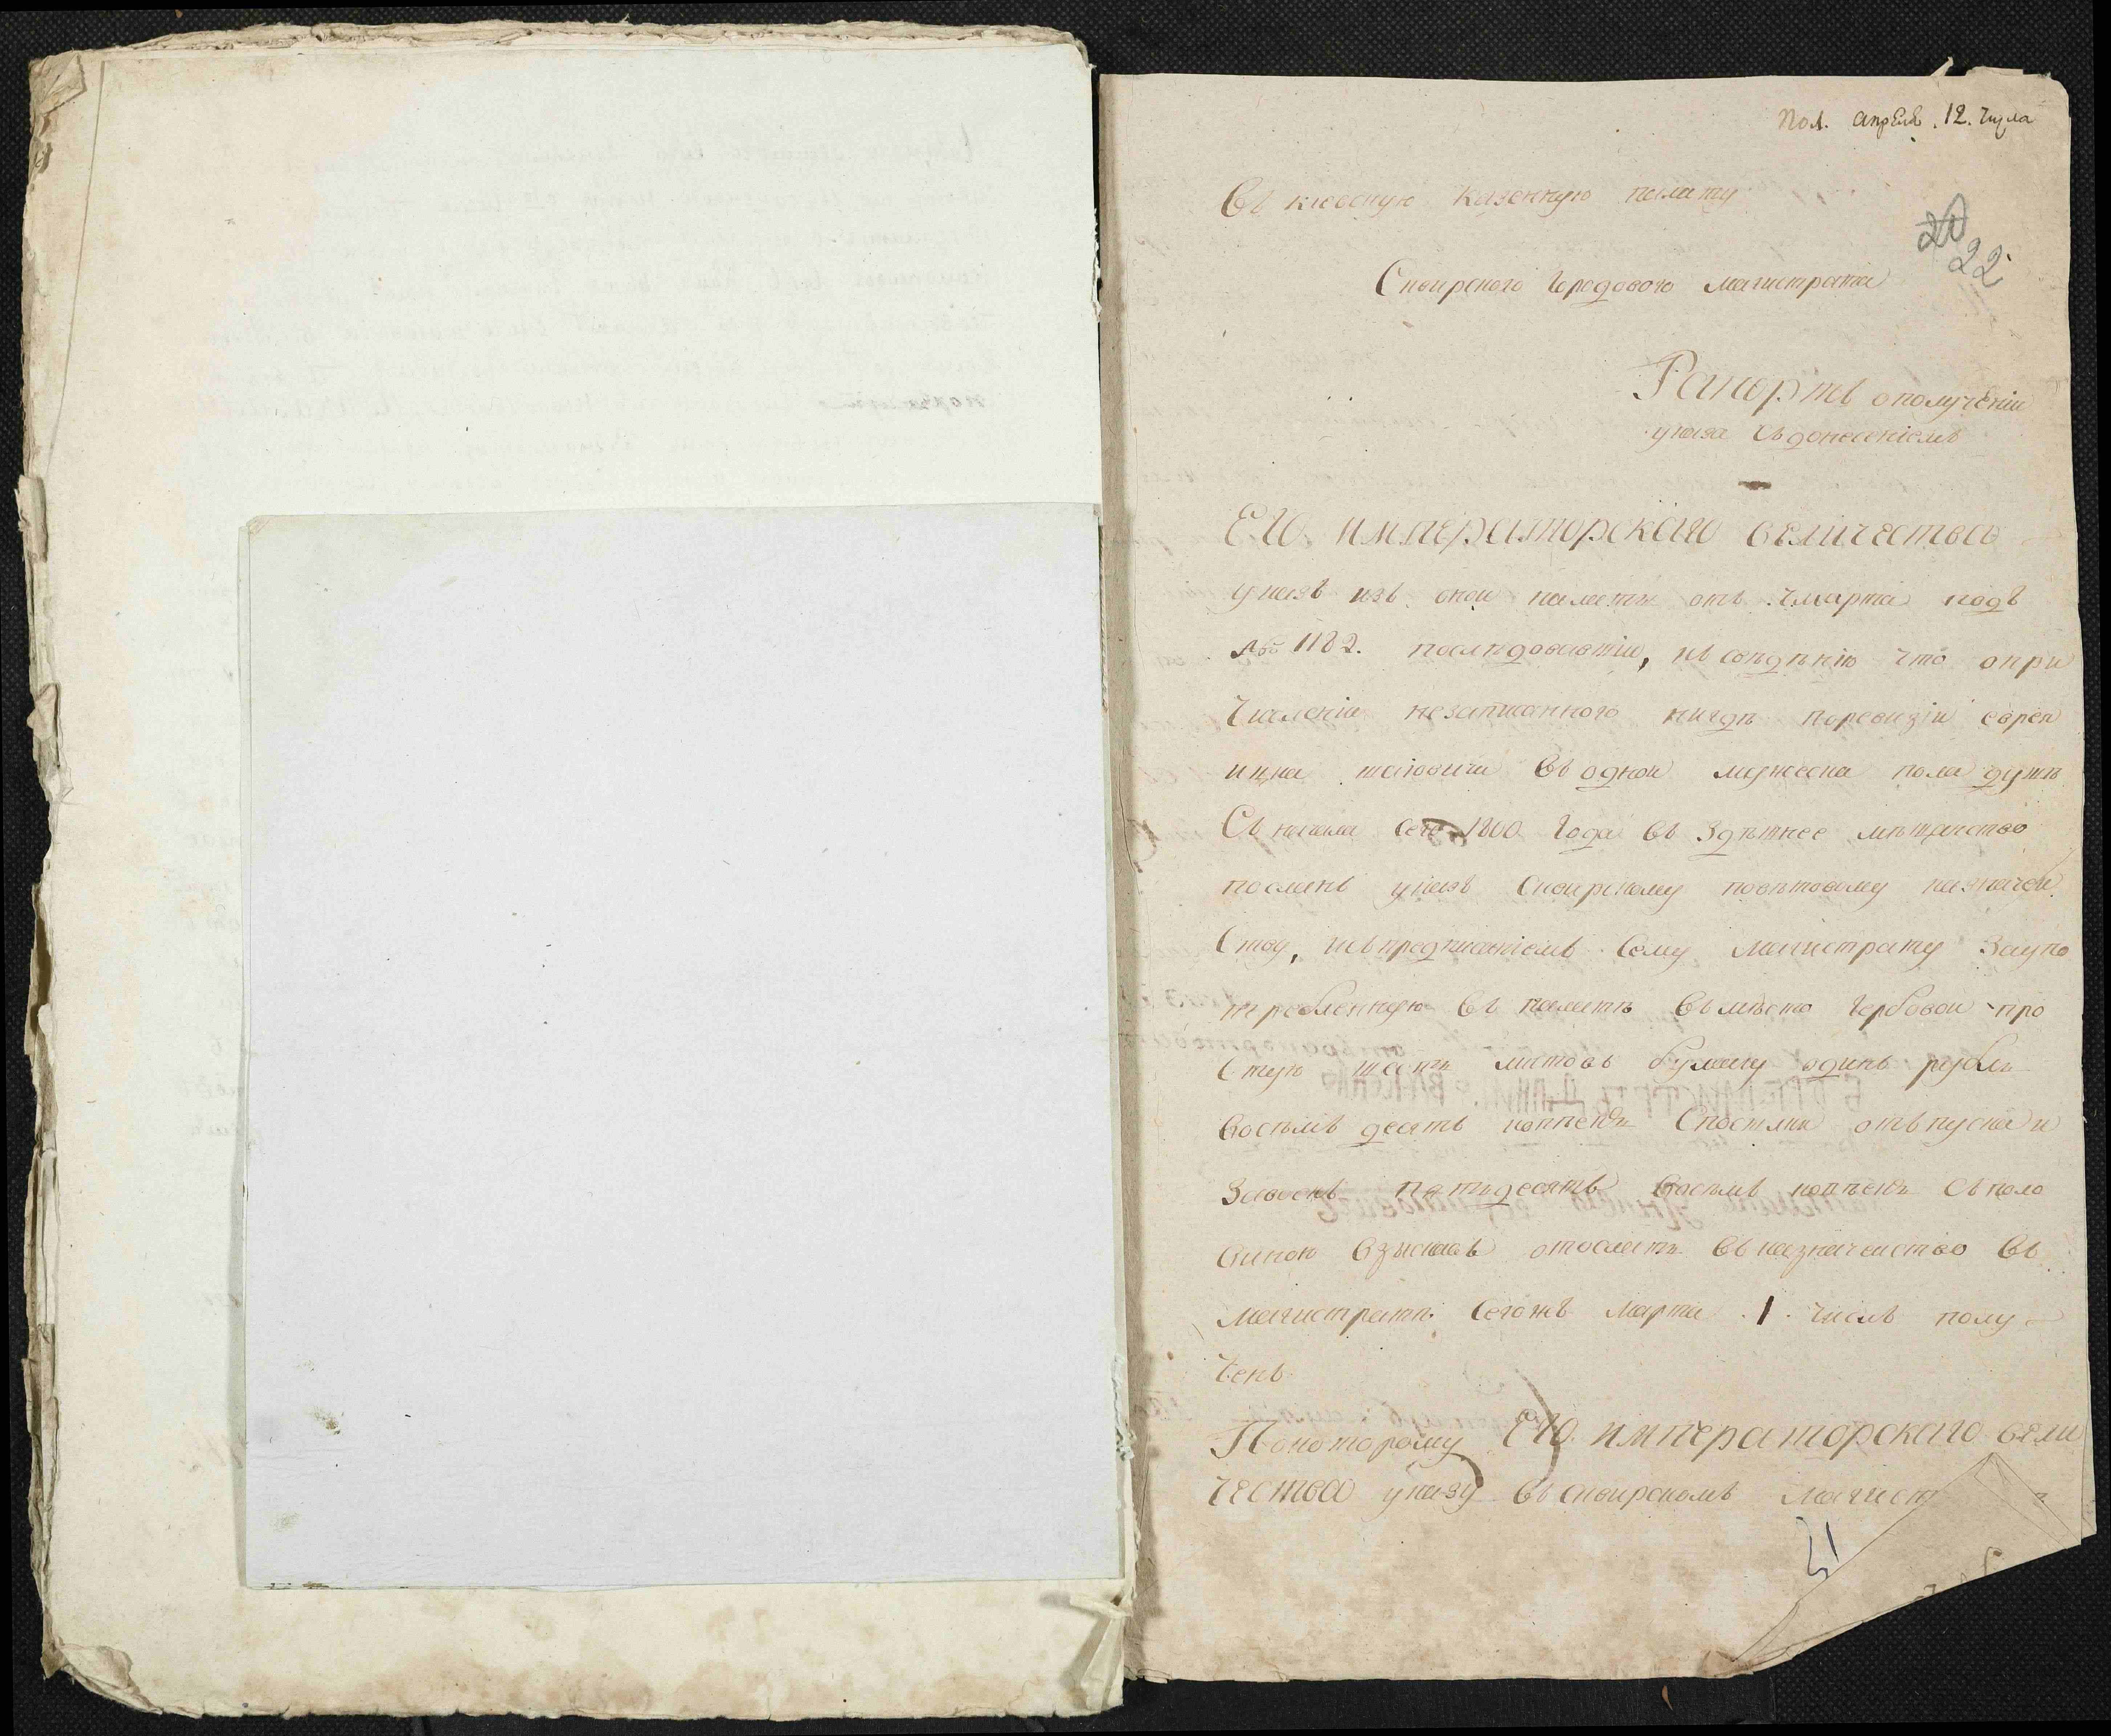 Пол. апреля. 12. числа
Въ киевскую казенную палату
20
22
Сквирского городового магистрата
Рапортъ о получении
указа съ донесениемъ
ЕГО ИМПЕРАТОРСКАГО ВЕЛИЧЕСТВА
указъ изъ оной палаты отъ марта подъ
№ 1182. последовавший, къ сведению что о при
числении незаписанного нигде по ревизии еврея
ицка въ одной мужеска пола душе
Съ начала сего 1800 года въ здешнее мещанство
посланъ указъ Сквирскому поветовому казначей
Ству, и съ предписаниемъ сему магистрату За упо
требленную въ палате въместо гербовой про
Стую шесть листовъ бумагу одинъ рубль
восемъ десятъ копеекъ отъпуска и
пятьдесятъ восемъ копеекъ съ поло
виною взыскавъ отослать въ казначейство въ
магистрате сегожъ марта .1. числъ полу
ченъ
По которому ЕГО ИМПЕРАТОРСКАГО ВЕЛИ
ЧЕСТВА указу въ сквирскомъ магист
21